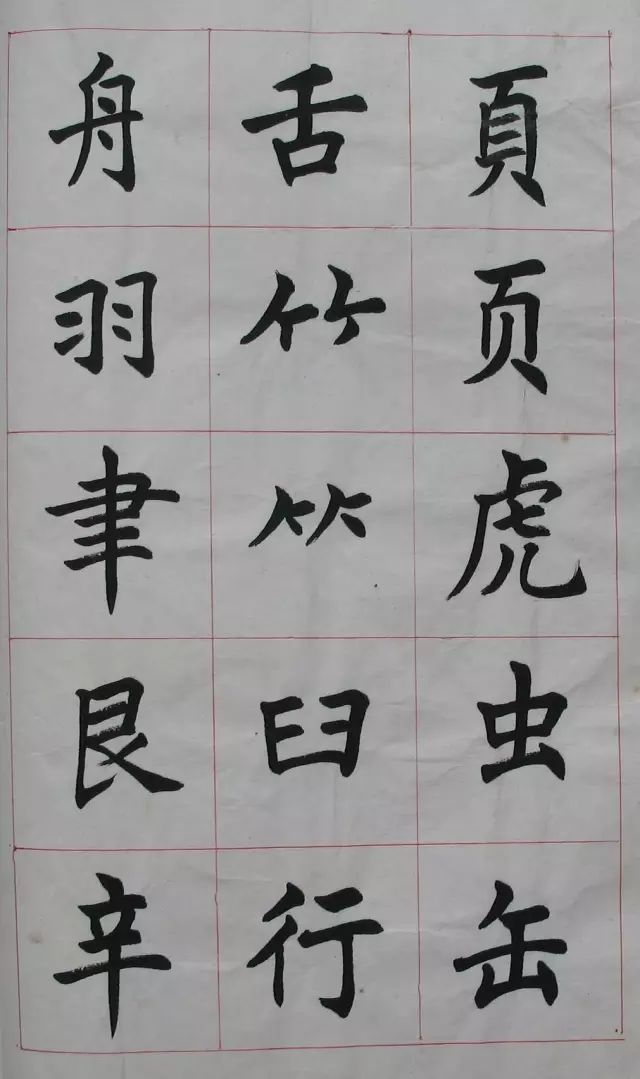 頁页虎虫缶
舌竹⺮臼行
舟羽聿艮辛